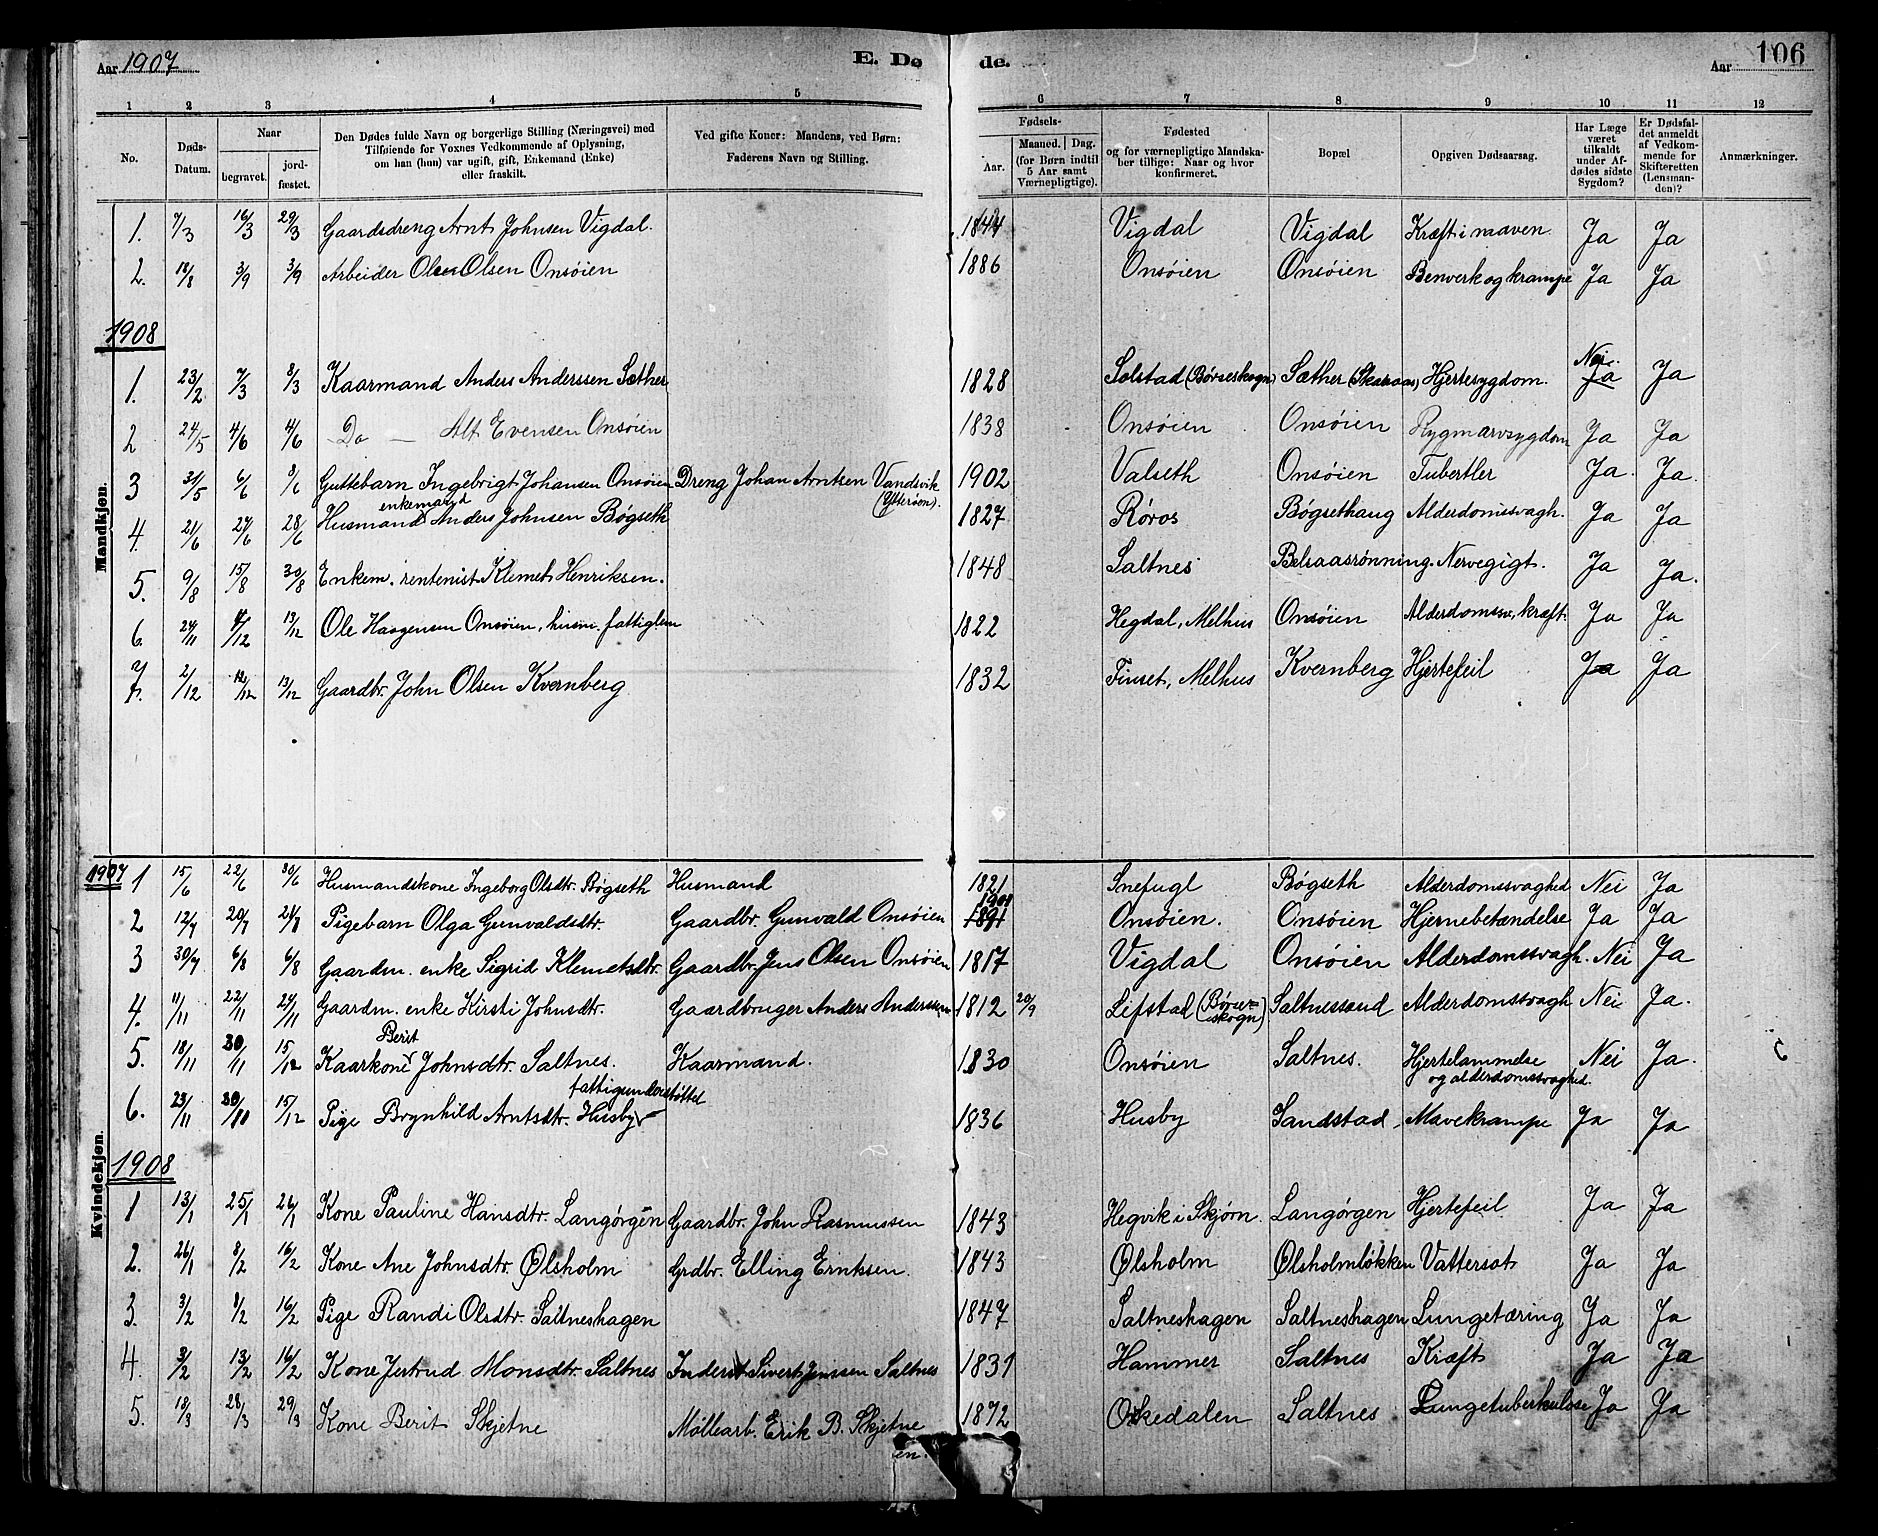 Aar 1907
E. Dø
de.
Aar
106
1 2 3 4 5 6 7 8 9 10 11 12
No.
Døds-Datum.
Naar
begravet.
jord-fæstet.
Den Dødes fulde Navn og borgerlige Stilling (Næringsvei) med
Tilføiende for Voxnes Vedkommende af Oplysning,
om han (hun) var ugift, gift, Enkemand (Enke)
eller fraskilt.
Ved gifte Koner: Mandens, ved Børn:
Faderens Navn og Stilling.
Fødsels-
Aar.
Maaned. Dag.
(for Børn indtil
5 Aar samt
Værnepligtige).
Fødested
og for værnepligtige Mandska-
ber tillige: Naar og hvor
konfirmeret.
Bopæl
Opgiven Dødsaarsag.
Har Læge
været
tilkaldt
under Af-
dødes sidste
Sygdom?
Er Dødsfal-
det anmeldt
af Vedkom-
mende for
Skifteretten
(Lensman-
den)?
Anmærkninger.
Mandkjøn.
1. 7/3 16/3 29/3 Gaardsdreng Arnt Johnsen Vigdal. 1844 Vigdal Vigdal Kræft i maven. Ja Ja
2. 18/8 3/9 3/9 Arbeider Ole Olsen Onsöien 1886 Onsöien Onsöien Benverk og krampe Ja Ja
1908
1. 23/2 7/3 8/3 Kaarmand Anders Anderssen Sæther 1828 Solstad (Börseskogn) Sæther (Skaraas) Hjertesygdom. Nei. Ja Ja
2 24/5 4/6 4/6 Do — Alt Evensen Onsöien 1838 Onsöien Onsöien Rygmarvsygdom Ja Ja
3 31/5 6/6 8/6 Guttebarn Ingebrigt Johansen Onsöien Dreng Johan Arntsen Vandsvik (Ytteröen). 1902 Valseth Onsöien Tuberkler Ja. Ja.
4. 21/6 27/6 28/6 Husmand enkemand Anders Johnsen Bögseth 1827 Röros Bögsethaug Alderdomssvagh. Ja Ja
5. 9/8 15/8 30/8 Enkem. rentenist Klemet Henriksen. 1848 Saltnes Belsaasrönning. Nervegigt. Ja Ja.
6. 24/11 /12 13/12 Ole Haagensen Onsöien, husm. fattiglem 1822 Hegdal, Melhus Onsöien Alderdomssv, kræft. Ja Ja
7. 2/12 12/12 13/12 Gaardbr. John Olsen Kvernberg 1832 Finset, Melhus Kvernberg Hjertefeil Ja Ja
Kvindekjøn.
1907 1 15/6 22/6 30/6 Husmandskone Ingeborg Olsdtr. Bögseth Husmand 1821 Snefugl Bögseth Alderdomssvaghed Nei Ja
2 12/7 20/7 21/7 Pigebarn Olga Gunvaldsdtr. Gaardbr. Gunvald Onsöien 1891 1901 Onsöien. Onsöien Hjernebetændelse Ja Ja
3 30/7 6/8 6/8 Gaardm. enke Sigrid Klemetsdtr. Gaardbr. Jens Olsen Onsöien 1817 Vigdal Onsöien Alderdomssvagh. Nei Ja
4. 11/11 22/11 24/11 Gaardm. enke Kirsti Johnsdtr. Gaardbruger Anders Anderssen 1812 20/9 Lifstad (Börseskogn) Saltnessand Alderdomssvagh Nei Ja.
5. 18/11 30/11 15/12 Kaarkone Berit Johnsdtr. Saltnes. Kaarmand. 1830 Onsöien Saltnes. Hjertelammelse og alderdomssvaghed. Nei Ja.
6. 23/11 30/11 15/12 Pige Brynhild Arntsdtr. Husby fattigunderstöttet 1836 Husby Sandstad. Mavekrampe Ja Ja
1908
1 13/1 25/1 26/1 Kone Pauline Hansdtr. Langörgen Gaardbr. John Rasmussen 1843 Hegvik i Skjörn Langörgen Hjertefeil Ja Ja
2. 26/1 8/2 16/2 Kone Ane Johnsdtr Ölsholm Grdbr. Elling Erntssen. 1843 Ölsholm Ölsholmlökken Vattersot Ja Ja
3. 3/2 8/2 16/2 Pige Randi Olsdtr. Saltneshagen 1847 Saltneshagen Saltneshagen Lungetæring Ja Ja
4. 3/2 13/2 16/2 Kone Jertrud Monsdtr. Saltnes Inderst Sivert Jenssen Saltnes 1831 Hammer Saltnes Kræft Ja Ja
5. 18/3 28/3 29/3 Kone Berit Skjetne Möllearb. Erik B. Skjetne 1872 Orkedalen Saltnes Lungetuberkulose Ja Ja
en.